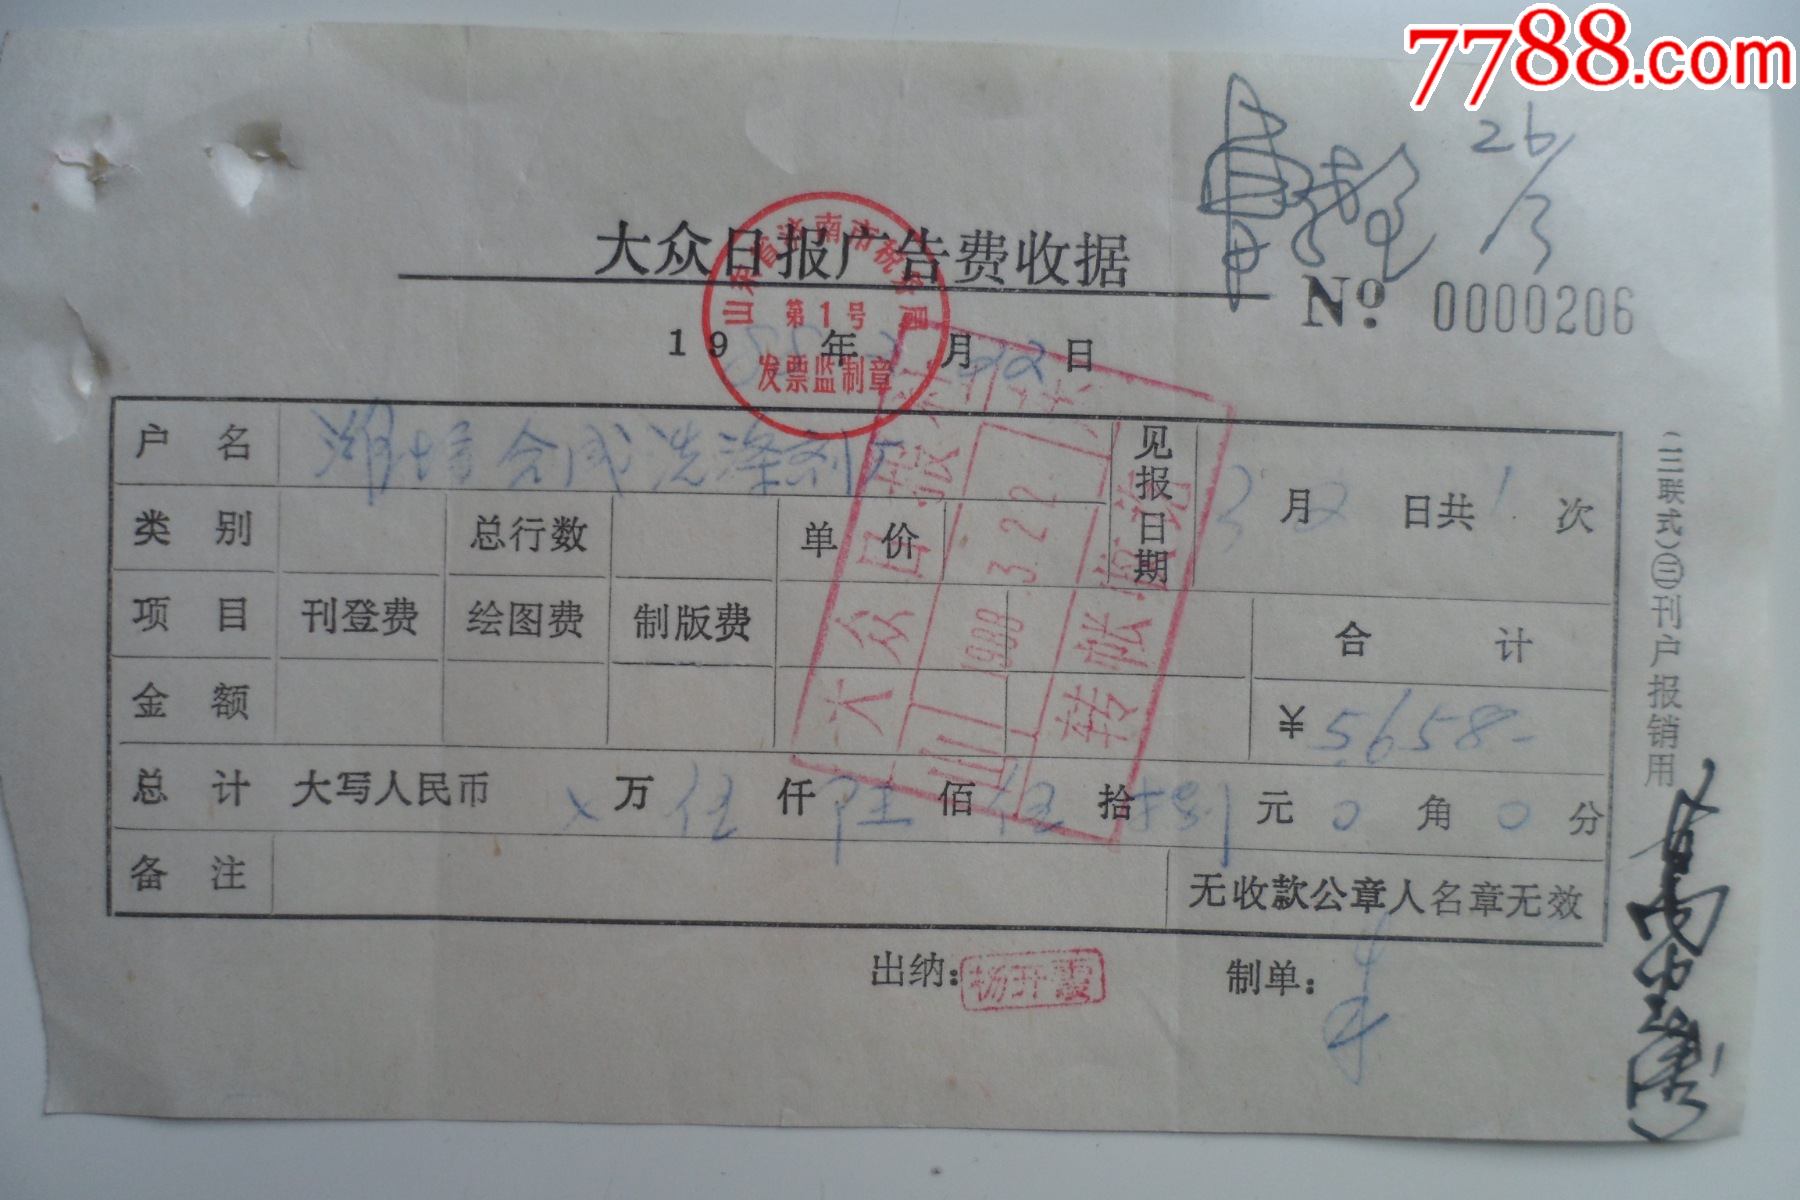 7788.com
26/3
大众日报广告费收据
山东省济南市税务局
第1号
发票监制章
No 0000206
19 88 年 3 月 22 日
户名 潍坊合成洗涤剂厂 见报日期 3 月 2 日共 1 次
类别 总行数 单价
项目 刊登费 绘图费 制版费 合计
金额 ¥5658-
总计 大写人民币 x 万 伍 仟 陆 佰 伍 拾 捌 元 0 角 0 分
备注 无收款公章人名章无效
大众日报社
1988.3.22
转帐收讫
出纳: 杨开霞 制单:
(二三联式)㊂刊户报销用